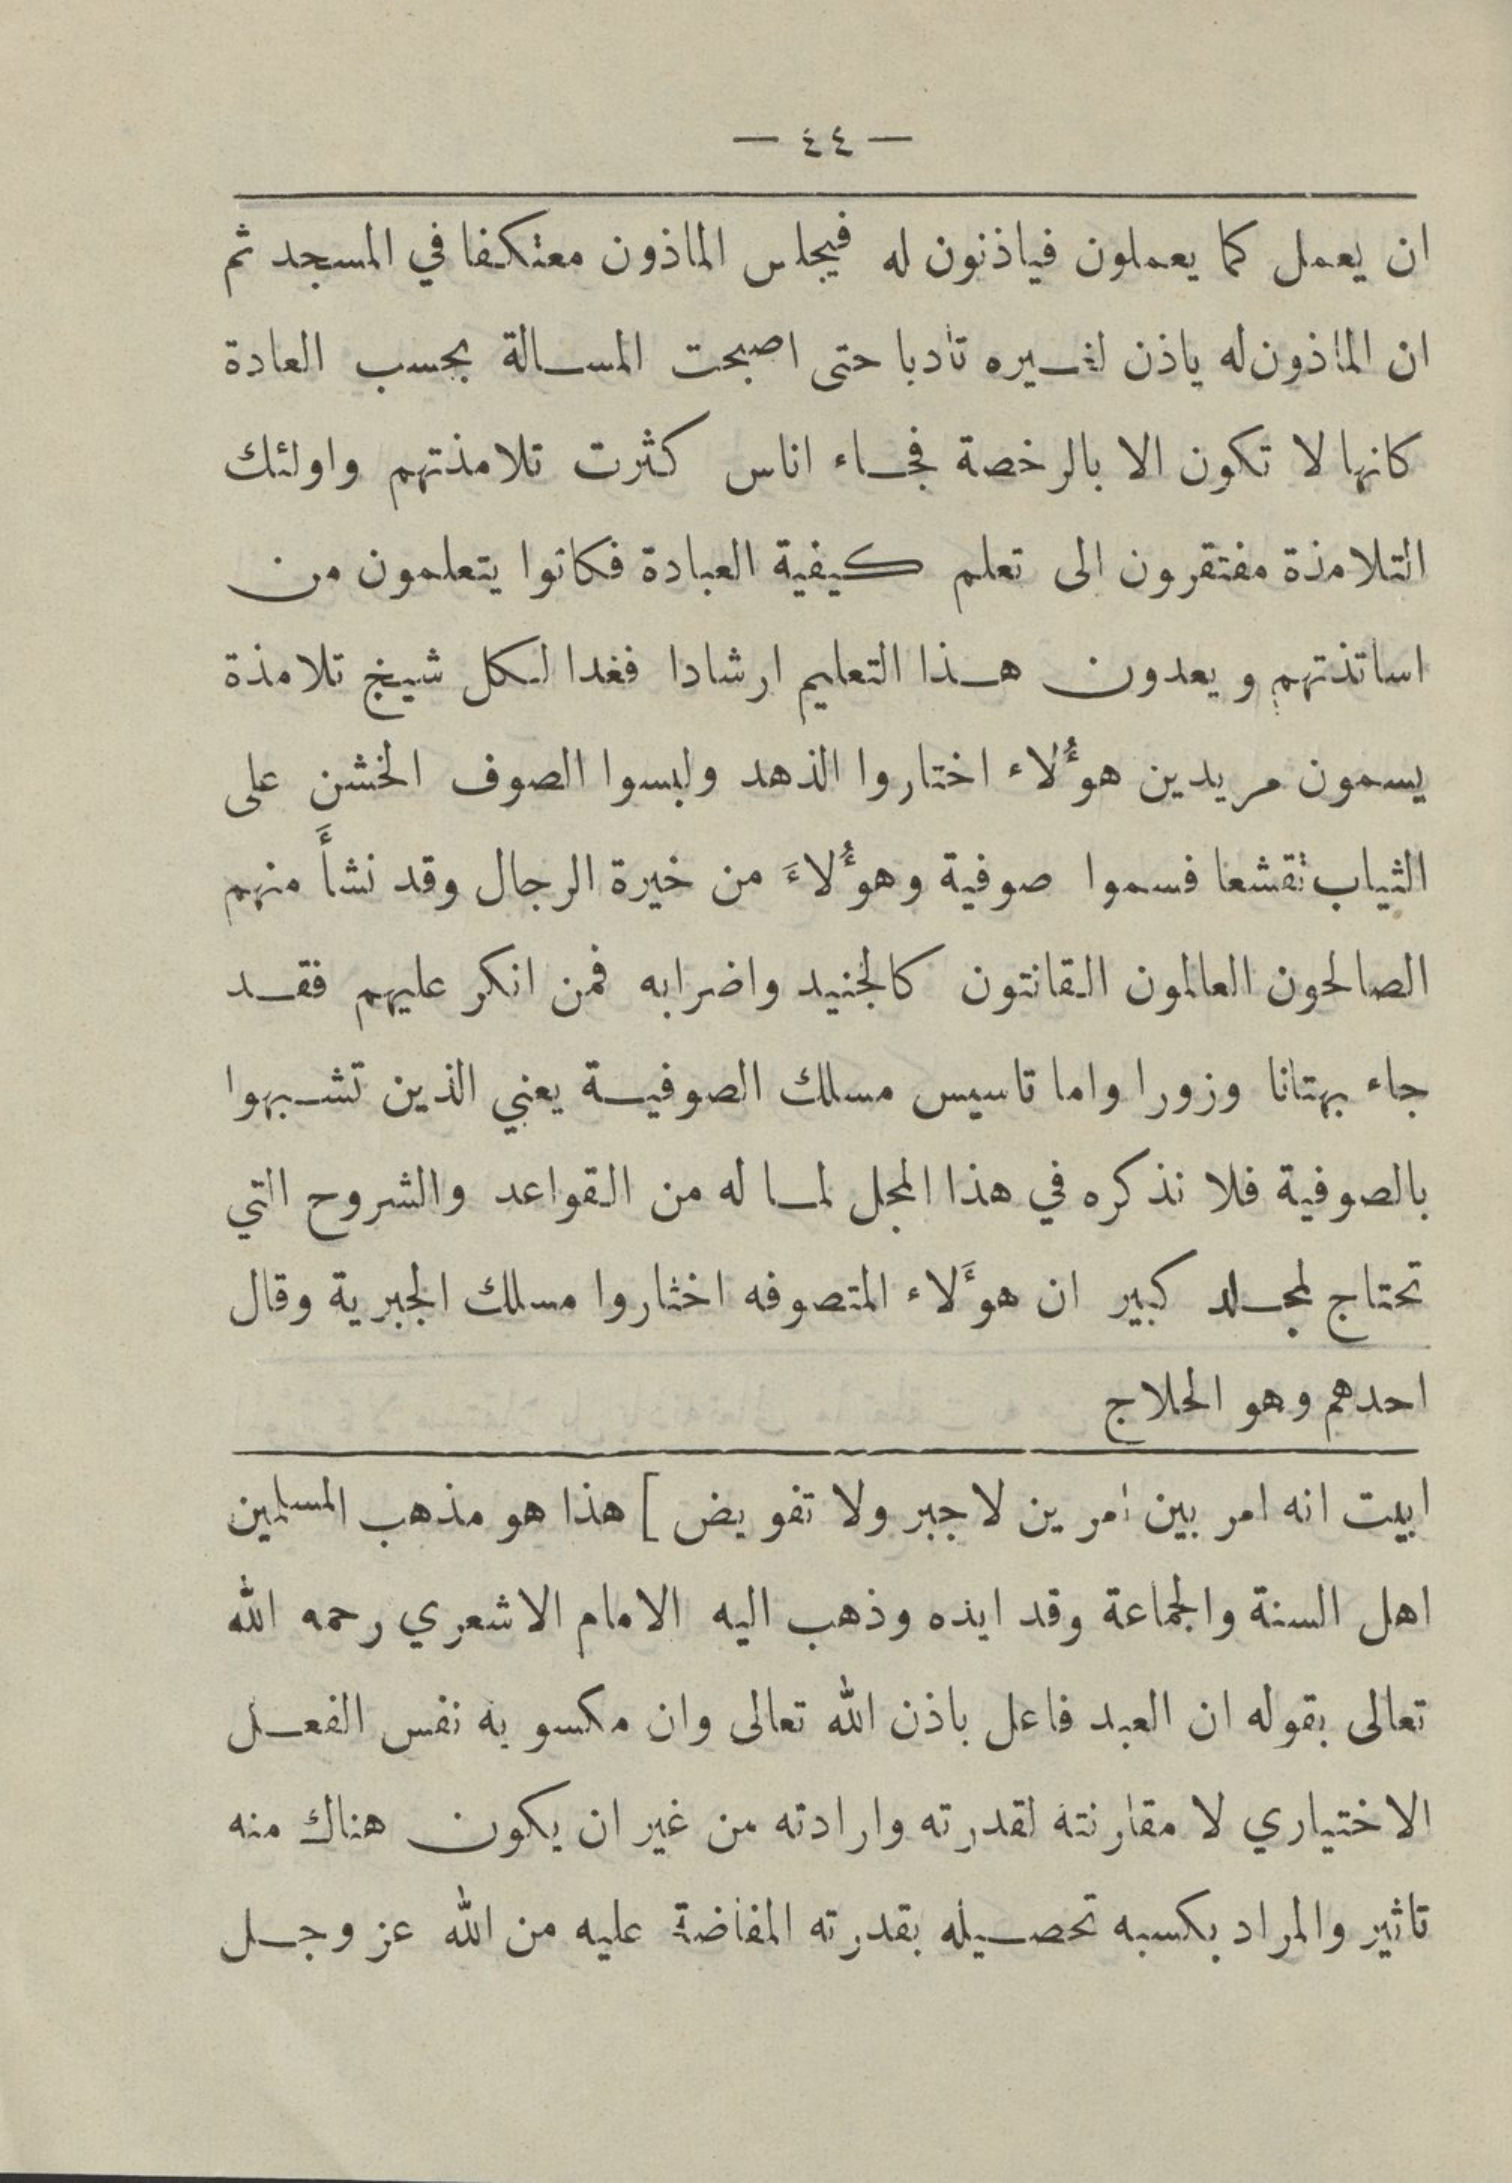 — ٤٤ —
ان يعمل كما يعملون فياذنون له فيجلس الماذون معتكفا في المسجد ثم
ان الماذون له ياذن لغيره تأدبا حتى اصبحت المسالة بحسب العادة
كانها لا تكون الا بالرخصة فجاء اناس كثرت تلامذتهم واولئك
التلامذة مفتقرون الى تعلم كيفية العبادة فكانوا يتعلمون من
اساتذتهم ويعدون هذا التعليم ارشادا فغدا لكل شيخ تلامذة
يسمون مريدين هوُلاء اختاروا الذهد ولبسوا الصوف الخشن على
الثياب تقشعا فسموا صوفية وهوُلاءَ من خيرة الرجال وقد نشأَ منهم
الصالحون العالمون القانتون كالجنيد واضرابه فمن انكر عليهم فقد
جاء بهتانا وزورا واما تاسيس مسلك الصوفية يعني الذين تشبهوا
بالصوفية فلا نذكره في هذا المحل لما له من القواعد والشروح التي
تحتاج لمجلد كبير ان هؤَلاء المتصوفه اختاروا مسلك الجبرية وقال
احدهم وهو الحلاج
ابيت انه امر بين امرين لا جبر ولا تفويض ] هذا هو مذهب المسلمين
اهل السنة والجماعة وقد ايده وذهب اليه الامام الاشعري رحمه الله
تعالى بقوله ان العبد فاعل باذن الله تعالى وان مكسوبه نفس الفعل
الاختياري لا مقارنته لقدرته وارادته من غير ان يكون هناك منه
تاثير والمراد بكسبه تحصيله بقدرته المفاضة عليه من الله عز وجل